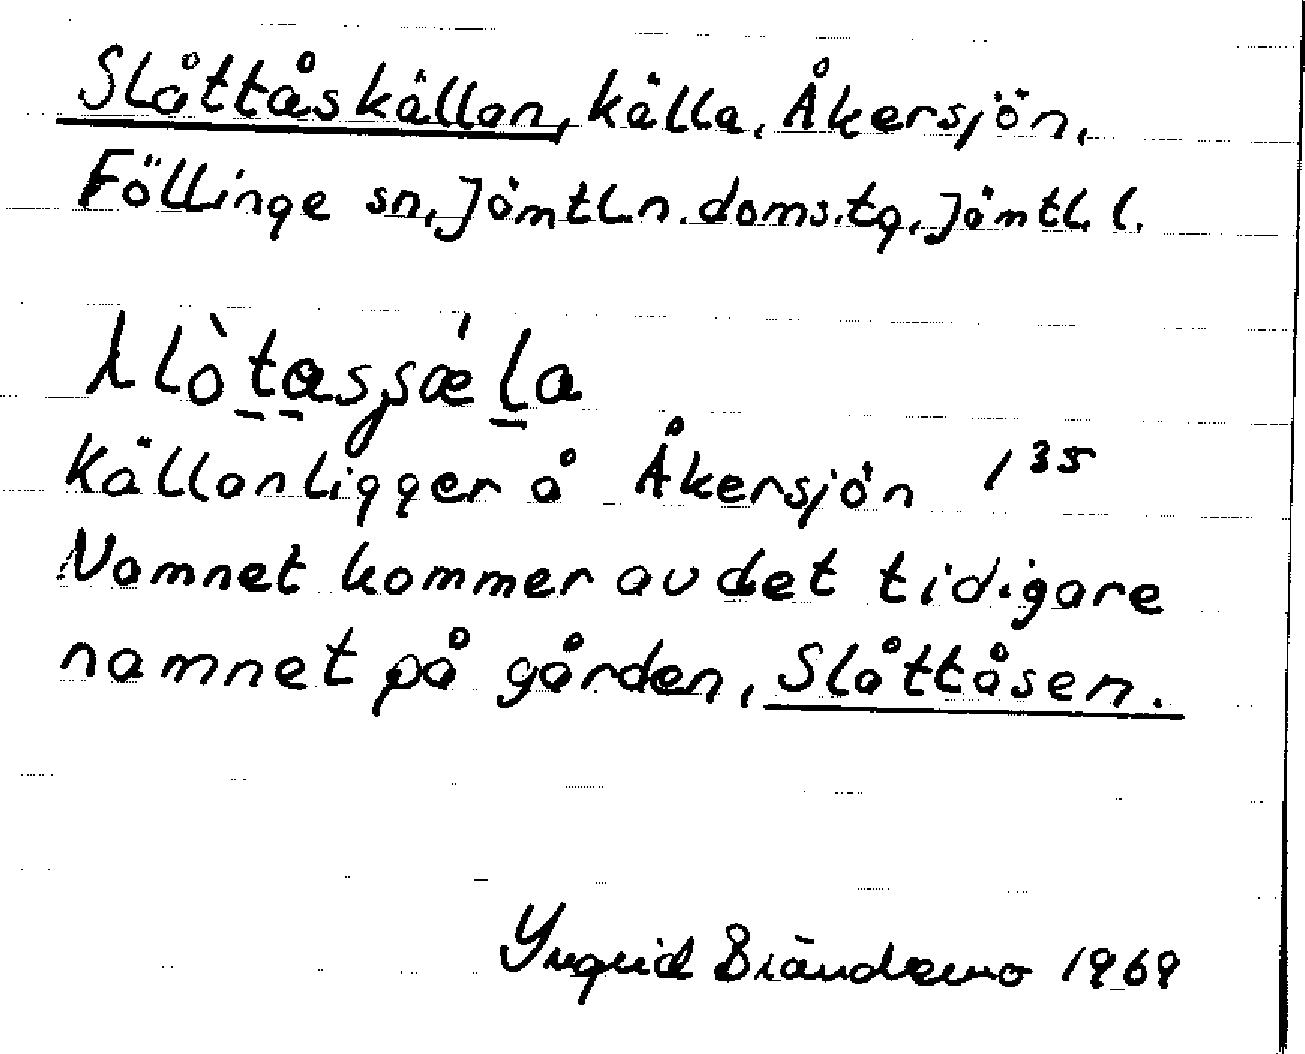 Slåttåskällan, källa, Åkersjön,
Föllinge sn, Jämtl.n.doms.tg, Jämtl. l.
Källan ligger å Åkersjön 1³⁵
Namnet kommer av det tidigare
namnet på gården, Slåttåsen.
Yngrid Brändemo 1969